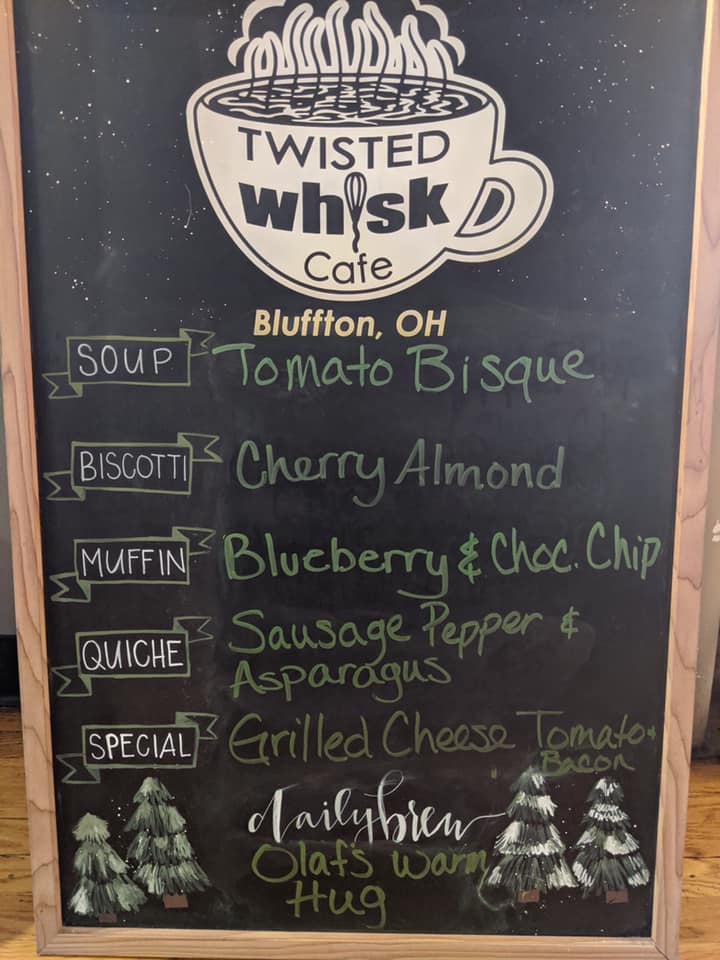 TWISTED
whisk
Cafe
Bluffton, OH
SOUP Tomato Bisque
BISCOTTI Cherry Almond
MUFFIN Blueberry & Choc. Chip
QUICHE Sausage Pepper &
Asparagus
SPECIAL Grilled Cheese Tomato &
Bacon
daily brew
Olaf's Warm
Hug